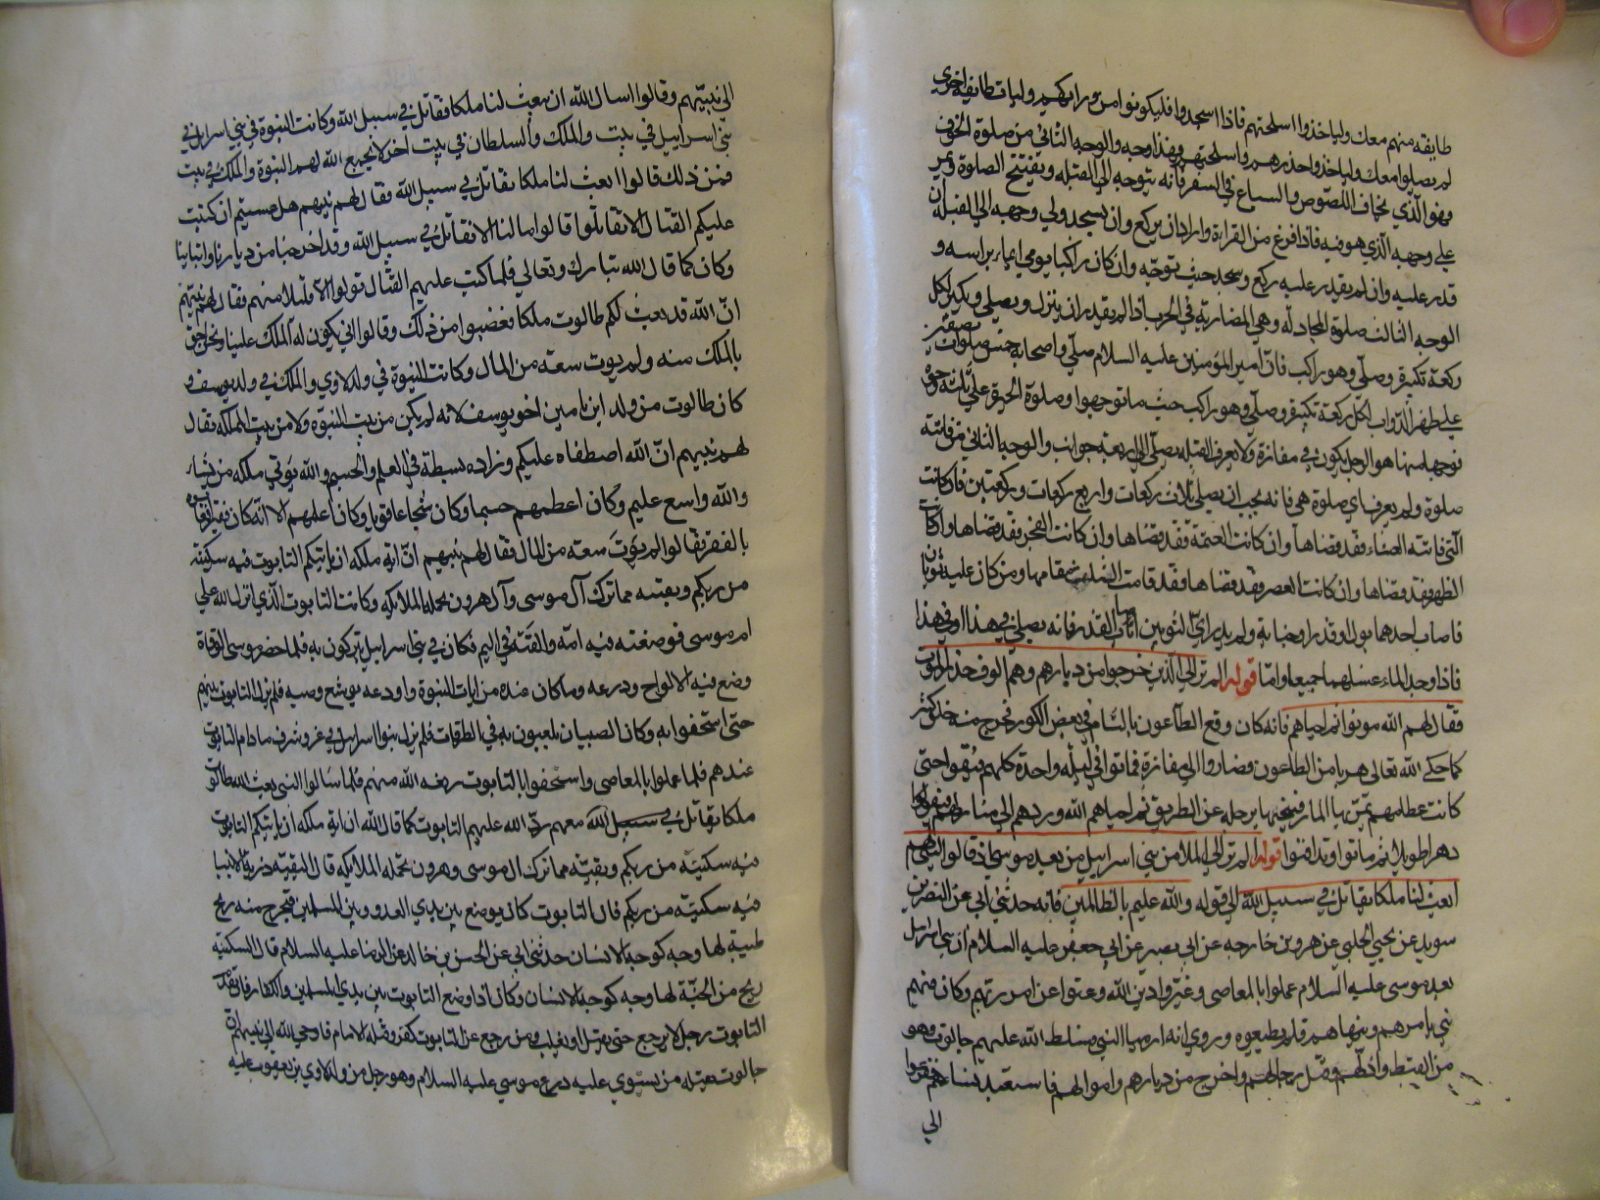 طايفه منهم معك ولياخذوا اسلحتهم فاذا اسجدوا فليكونوا من ورايكم وليات طايفه اخرى
لم يصلوا معك ولياخذوا حذرهم واسلحتهم فهذا وجه والوجه الثاني من صلوة الخوف
فهو الذي يخاف اللصوص والسباع في السفر فانه يتوجه الى القبله ويفتتح الصلوة ويمر
على وجهه الذي هو فيه فاذا فرغ من القراءة واراد ان يركع وان يسجد ولي وجهه الى القبله ان
قدر عليه وان لم يقدر عليه ركع وسجد حيث توجه وان كان راكبا يومي ايماء براسه و
الوجه الثالث صلوة المجادله وهي المضاربة في الحرب اذا لم يقدر ان ينزل ويصلي ويكبر لكل
ركعة تكبيرة وصلى وهو راكب فان امير المؤمنين عليه السلام صلى واصحابه خمس صلوات بصفين
على ظهر الدواب لكل ركعة تكبيرة وصلى وهو راكب حيث ما توجهوا وصلوة الحيرة على ثلثة وجوه
فوجه منها هو الرجل يكون في مفازة ولا يعرف القبله يصلي الى اربعة جوانب والوجه الثاني من فاتته
صلوة ولم يعرف اي صلوة هي فانه يجب ان يصلي ثلاث ركعات واربع ركعات وركعتين فان كانت
التي فاتته العشاء فقد قضاها وان كانت العتمة فقد قضاها وان كانت الفجر فقد قضاها وان كانت
الظهر فقد قضاها وان كانت العصر فقد قضاها فقد قامت الثلث مقامها ومن كان عليه ثوبان
فاصاب احدهما بول او قدر او جنابة ولم يدر اي الثوبين اصاب القدر فانه يصلي في هذا وفي هذا
فاذا وجد الماء غسلهما جميعا واما قوله الم تر الى الذين خرجوا من ديارهم وهم الوف حذر الموت
فقال لهم الله موتوا ثم احياهم فانه كان وقع الطاعون بالشام في بعض الكور فخرج منه خلق كثير
كما حكى الله تعالى هربا من الطاعون فصاروا الى مفازة فماتوا في ليلة واحدة كلهم فبقوا حتى
كانت عظامهم يمر بها المار فينحيها برجله عن الطريق ثم احياهم الله وردهم الى منازلهم فبقوا
دهرا طويلا ثم ماتوا وتدافنوا قوله الم تر الى الملا من بني اسرائيل من بعد موسى اذ قالوا لنبي لهم
ابعث لنا ملكا يقاتل في سبيل الله الى قوله والله عليم بالظالمين فانه حدثني ابي عن النضر بن
سويد عن يحيى الحلبي عن هرون خارجه عن ابي بصير عن ابي جعفر عليه السلام ان بني اسرائيل
بعد موسى عليه السلام عملوا بالمعاصي وغيروا دين الله وعتوا عن امر ربهم وكان فيهم
نبي يامرهم وينهاهم فلم يطيعوه وروي انه ارميا النبي فسلط الله عليهم جالوت وهو
من القبط واذلهم وقتل رجالهم واخرج من ديارهم واموالهم فاستعبد نساءهم ففزعوا
الى
الى نبيهم وقالوا اسال الله ان يبعث لنا ملكا فقاتل في سبيل الله وكانت النبوة في بني اسرائيل في
بني اسرائيل في بيت والملك والسلطان في بيت اخر لا يجمع الله لهم النبوة والملك في بيت
فمن ذلك قالوا ابعث لنا ملكا يقاتل في سبيل الله فقال لهم نبيهم هل عسيتم ان كتبت
عليكم القتال الا تقاتلوا قالوا مالنا الا نقاتل في سبيل الله وقد اخرجنا من ديارنا وابناينا
وكان كما قال الله تبارك وتعالى فلما كتب عليهم القتال تولوا الا قليلا منهم فقال لهم نبيهم
ان الله قد بعث لكم طالوت ملكا فغضبوا من ذلك وقالوا انى يكون له الملك علينا ونحن احق
بالملك منه ولم يوت سعة من المال وكانت النبوة في ولد لاوي والملك في ولد يوسف و
كان طالوت من ولد ابن يامين اخو يوسف لانه لم يكن من بيت النبوة ولا من بيت المملكه فقال
لهم نبيهم ان الله اصطفاه عليكم وزاده بسطة في العلم والجسم والله يوتي ملكه من يشاء
والله واسع عليم وكان اعظمهم جسيما وكان شجاعا قويا وكان اعلمهم الا انه كان فقيرا
بالفقر فقالوا لم يوت سعة من المال فقال لهم نبيهم ان اية ملكه ان ياتيكم التابوت فيه سكينة
من ربكم وبقية مما ترك آل موسى وآل هرون تحمله الملائكه وكانت التابوت الذي انزل الله على
ام موسى فوضعته فيه امه والقته في اليم فكان في بني اسرائيل يتبركون به فلما حضر موسى الوفاة
وضع فيه الالواح ودرعه وما كان عنده من ايات النبوة واودعه يوشع وصيه فلم يزل التابوت بينهم
حتى استخفوا به وكان الصبيان يلعبون به في الطرقات فلم يزل بنوا اسرايل في عز وشرف ما دام التابوت
عندهم فلما عملوا بالمعاصي واستخفوا بالتابوت رفعه الله منهم فلما سالوا النبي بعث الله طالوت
ملكا يقاتل في سبيل الله معهم رد الله عليهم التابوت كما قال الله ان اية ملكه ان ياتيكم التابوت
فيه سكينة من ربكم وبقية مما ترك ال موسى وهرون تحمله الملايكه قال البقية ذرية الانبيا
فيه سكينة من ربكم قال التابوت كان يوضع بين يدي العدو وبين المسلمين فيخرج منه ريح
طيبة لها وجه كوجه الانسان حدثني ابي عن الحسن بن خالد عن الرضا عليه السلام قال السكينة
ريح من الجنة لها وجه كوجه الانسان وكان اذا وضع التابوت بين يدي المسلمين والكفار فان تقدم
التابوت رجل لا يرجع حتى يقتل او يغلب ومن رجع عن التابوت كفر وقتله الامام فاوحى الله الى نبيهم ان
جالوت يقتله من يستوي عليه درع موسى عليه السلام وهو رجل من ولد لاوي بن يعقوب عليه